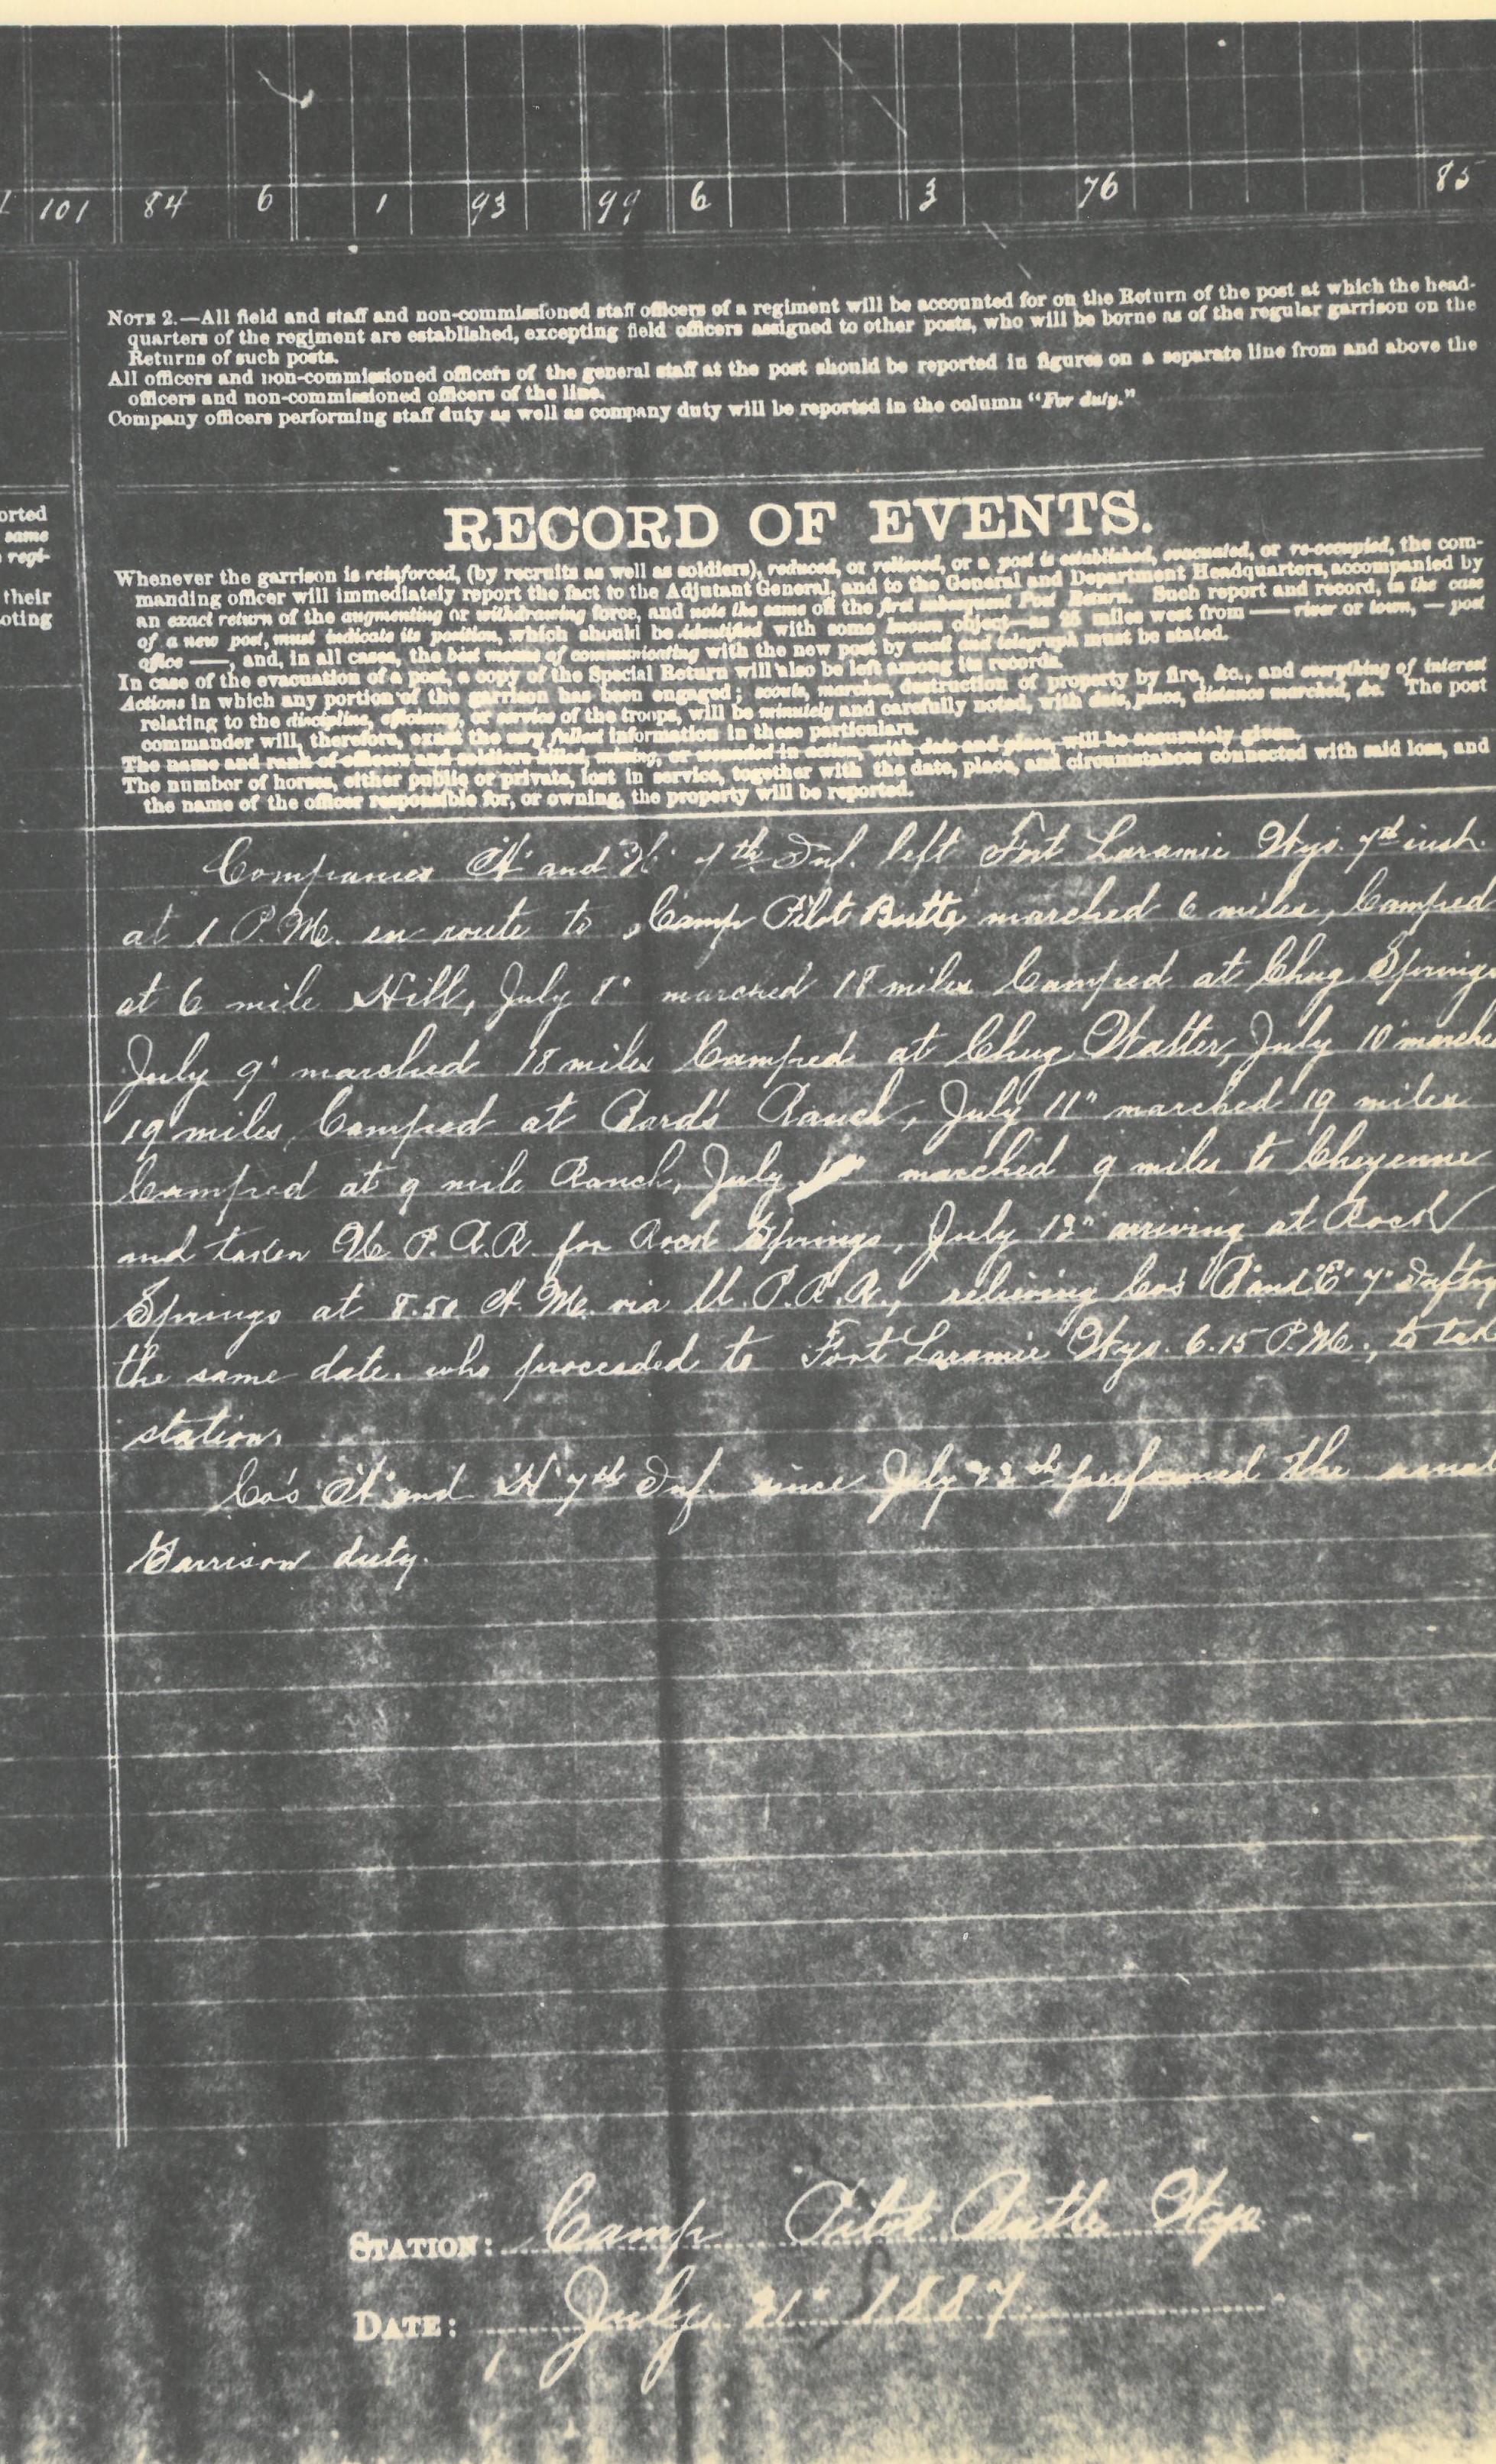 101 84 6 1 93 99 6 3 76 85
NOTE 2.—All field and staff and non-commissioned staff officers of a regiment will be accounted for on the Return of the post at which the head-
quarters of the regiment are established, excepting field officers assigned to other posts, who will be borne as of the regular garrison on the
Returns of such posts.
All officers and non-commissioned officers of the general staff at the post should be reported in figures on a separate line from and above the
officers and non-commissioned officers of the line.
Company officers performing staff duty as well as company duty will be reported in the column "For duty."
RECORD OF EVENTS.
orted
same
regi-
their
oting
Whenever the garrison is reinforced, (by recruits as well as soldiers), reduced, or relieved, or a post is established, evacuated, or re-occupied, the com-
manding officer will immediately report the fact to the Adjutant General, and to the General and Department Headquarters, accompanied by
an exact return of the augmenting or withdrawing force, and note the same on the first subsequent Post Return. Such report and record, in the case
of a new post, must indicate its position, which should be identified with some known object—as 25 miles west from —— river or town, — post
office ——, and, in all cases, the best means of communicating with the new post by mail and telegraph must be stated.
In case of the evacuation of a post, a copy of the Special Return will also be left among its records.
Actions in which any portion of the garrison has been engaged; scouts, marches, destruction of property by fire, &c., and everything of interest
relating to the discipline, efficiency, or service of the troops, will be minutely and carefully noted, with date, place, distance marched, &c. The post
commander will, therefore, exact the very fullest information in these particulars.
The name and rank of officers and soldiers killed, missing, or wounded in action, with date and place, will be accurately given.
The number of horses, either public or private, lost in service, together with the date, place, and circumstances connected with said loss, and
the name of the officer responsible for, or owning, the property will be reported.
Companies "A" and H 7th Inf. left Fort Laramie Wyo. 7th inst.
at 1 P.M. en route to Camp Pilot Butte marched 6 miles, Camped
at 6 mile Hill, July 8" marched 18 miles Camped at Chug Springs
July 9" marched 18 miles Camped at Chug Watter, July 10" marche
19 miles, Camped at Bard's Ranch, July 11" marched 19 miles
Camped at 9 mile Ranch, July marched 9 miles to Cheyenne
and taken U.P.R.R. for Rock Springs, July 12" arriving at Rock
Springs at 8.50 A.M. via U.P.R.R., relieving Co's and "E" 7" Inftry
the same date. who proceeded to Fort Laramie Wyo. 6.15 P.M., to take
station.
Co's "A" and H 7th Inf. since July performed the usual
Garrison duty.
STATION: Camp Pilot Butte Wyo
DATE: July 31" 1887